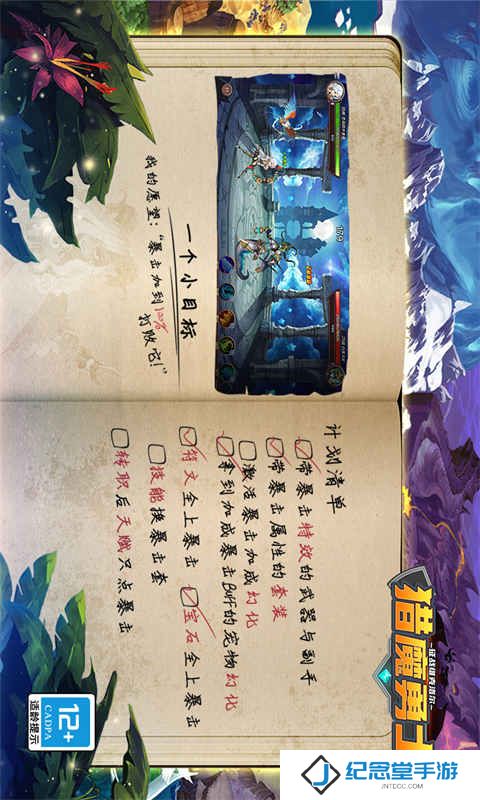 一个小目标
我的愿望："暴击加到100%
打败它！"
计划清单
带暴击特效的武器与副手
带暴击属性的套装
激活暴击加成幻化
拿到加成暴击Buff的宠物幻化
符文全上暴击 宝石全上暴击
技能换暴击套
转职后天赋只点暴击
猎魔勇
12+
CADPA
适龄提示
纪念堂手游
JNTECC.COM